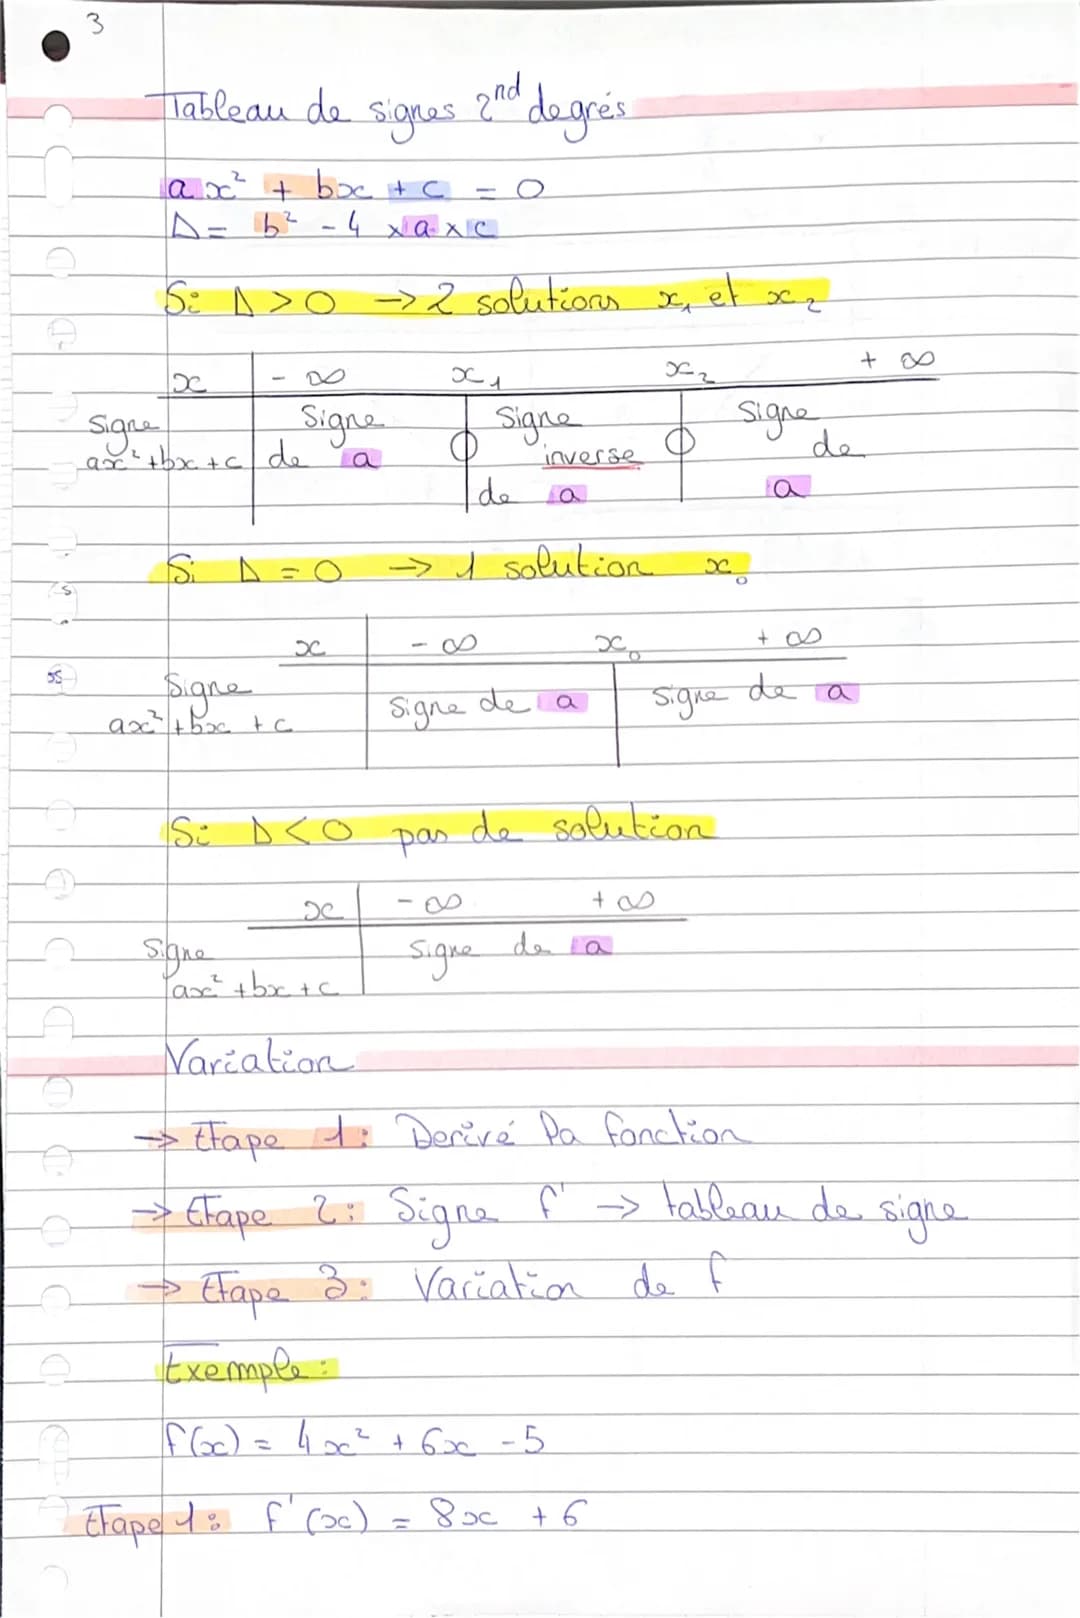 3
Tableau de signes 2nd degrés
ax² + bx + c = 0
Δ = b² - 4 x a x c
Si Δ > 0 → 2 solutions x₁ et x₂
x - ∞ x₁ x₂ + ∞
Signe Signe Signe Signe
ax² + bx + c de a 0 inverse 0 de
de a a
Si Δ = 0 → 1 solution x₀
x - ∞ x₀ + ∞
Signe signe de a signe de a
ax² + bx + c
Si Δ < 0 pas de solution
x - ∞ + ∞
Signe signe de a
ax² + bx + c
Variation
→ Etape 1 : Derivé la fonction
→ Etape 2 : Signe f' → tableau de signe
→ Etape 3 : Variation de f
Exemple :
f(x) = 4x² + 6x - 5
Etape 1 : f'(x) = 8x + 6